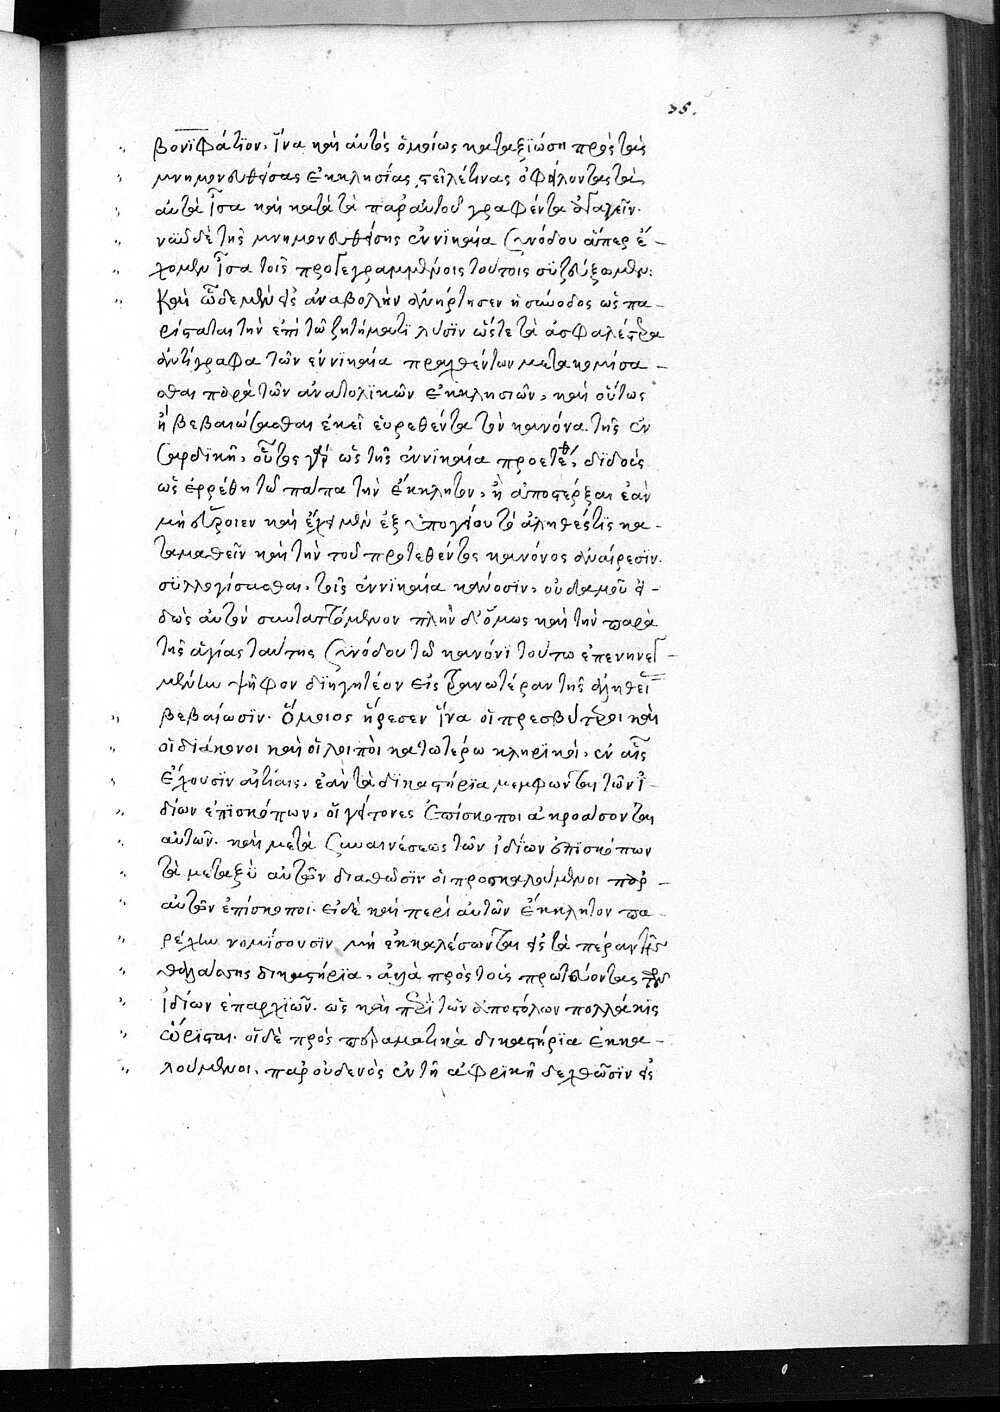 35.
βονϊφάτϊον, ἵνα καὶ αὐτὸς ὁμοίως καταξϊώση πρὸς τὰς
μνημονευθείσας ἐκκλησίας στεῖλαί τινας ὀφείλοντας τὰ
αὐτὰ ἴσα καὶ κατὰ τὰ παρ' αὐτοῦ γραφέντα ἀγαγεῖν.
νῦν δὲ τῆς μνημονευθείσης ἐν νϊκαία συνόδου ἅπερ ἔ-
χομεν ἴσα τοῖς προγεγραμμένοις τούτοις συζεύξωμεν.
Καὶ ὧδε μὲν εἰς ἀναβολὴν ἀνήρτησεν ἡ σύνοδος ὡς πα-
ρίσταται τὴν ἐπὶ τῶ ζητήματι λύσϊν ὥστε τὰ ἀσφαλέστερα
ἀντίγραφα τῶν ἐν νϊκαία πραχθέντων μετακομίσα-
σθαι παρὰ τῶν ἀνατολϊκῶν ἐκκλησιῶν, καὶ οὕτως
ἢ βεβαιώσασθαι ἐκεῖ εὑρεθέντα τὸν κανόνα τῆς ἐν
σαρδικῆ, οὗτος γὰρ ὡς τῆς ἐν νϊκαία προετέθ, διδοὺς
ὡς ἐρρέθη τῶ πάπα τὴν ἔκκλητον, ἢ ἀποστέρξαι ἐὰν
μὴ εὕροιεν καὶ ἔχει μὲν ἐξ ὑπογύου τὸ ἀληθές τις κα-
ταμαθεῖν καὶ τὴν τοῦ προτεθέντος κανόνος ἀναίρεσϊν
συλλογίσασθαι, τοῖς ἐν νϊκαία κανόσϊν, οὐδαμοῦ εἰ-
δὼς αὐτὸν συνταττόμενον πλὴν δ' ὅμως καὶ τὴν παρὰ
τῆς ἁγίας ταύτης συνόδου τῶ κανόνϊ τούτω ἐπενηνεγ-
μένην ψῆφον διηγητέον εἰς τρανωτέραν τῆς ἀληθεί
βεβαίωσϊν. Ὅμοιος ἤρεσεν ἵνα οἱ πρεσβύτεροι καὶ
οἱ διάκονοι καὶ οἱ λοιποὶ κατωτέρω κληρϊκοὶ, ἐν αἷς
ἔχουσϊν αἰτίαις, ἐὰν τὰ δϊκαστήρϊα μέμφωνται τῶν ἰ-
δίων ἐπϊσκόπων, οἱ γείτονες ἐπίσκοποι ἀκροάσονται
αὐτῶν. καὶ μετὰ συναινέσεως τῶν ἰδίων ἐπϊσκόπων
τὰ μεταξὺ αὐτῶν διαθῶσϊν οἱ προσκαλούμενοι παρ-
αὐτῶν ἐπίσκοποι. εἰ δὲ καὶ περὶ αὐτῶν ἔκκλητον πα-
ρέχειν νομίσουσϊν μὴ ἐκκαλέσωνται εἰς τὰ πέραν τῆς
θαλάσσης δικαστήρϊα, ἀλλὰ πρὸς τοὺς πρωτεύοντας τῶν
ἰδίων ἐπαρχϊῶν. ὡς καὶ περὶ τῶν ἀποστόλων πολλάκις
ὥρϊσται. οἱ δὲ πρὸς περαματικὰ δικαστήρϊα ἐκκα-
λούμενοι, παρ' οὐδενὸς ἐν τῆ ἀφρϊκῆ δεχθῶσϊν εἰς